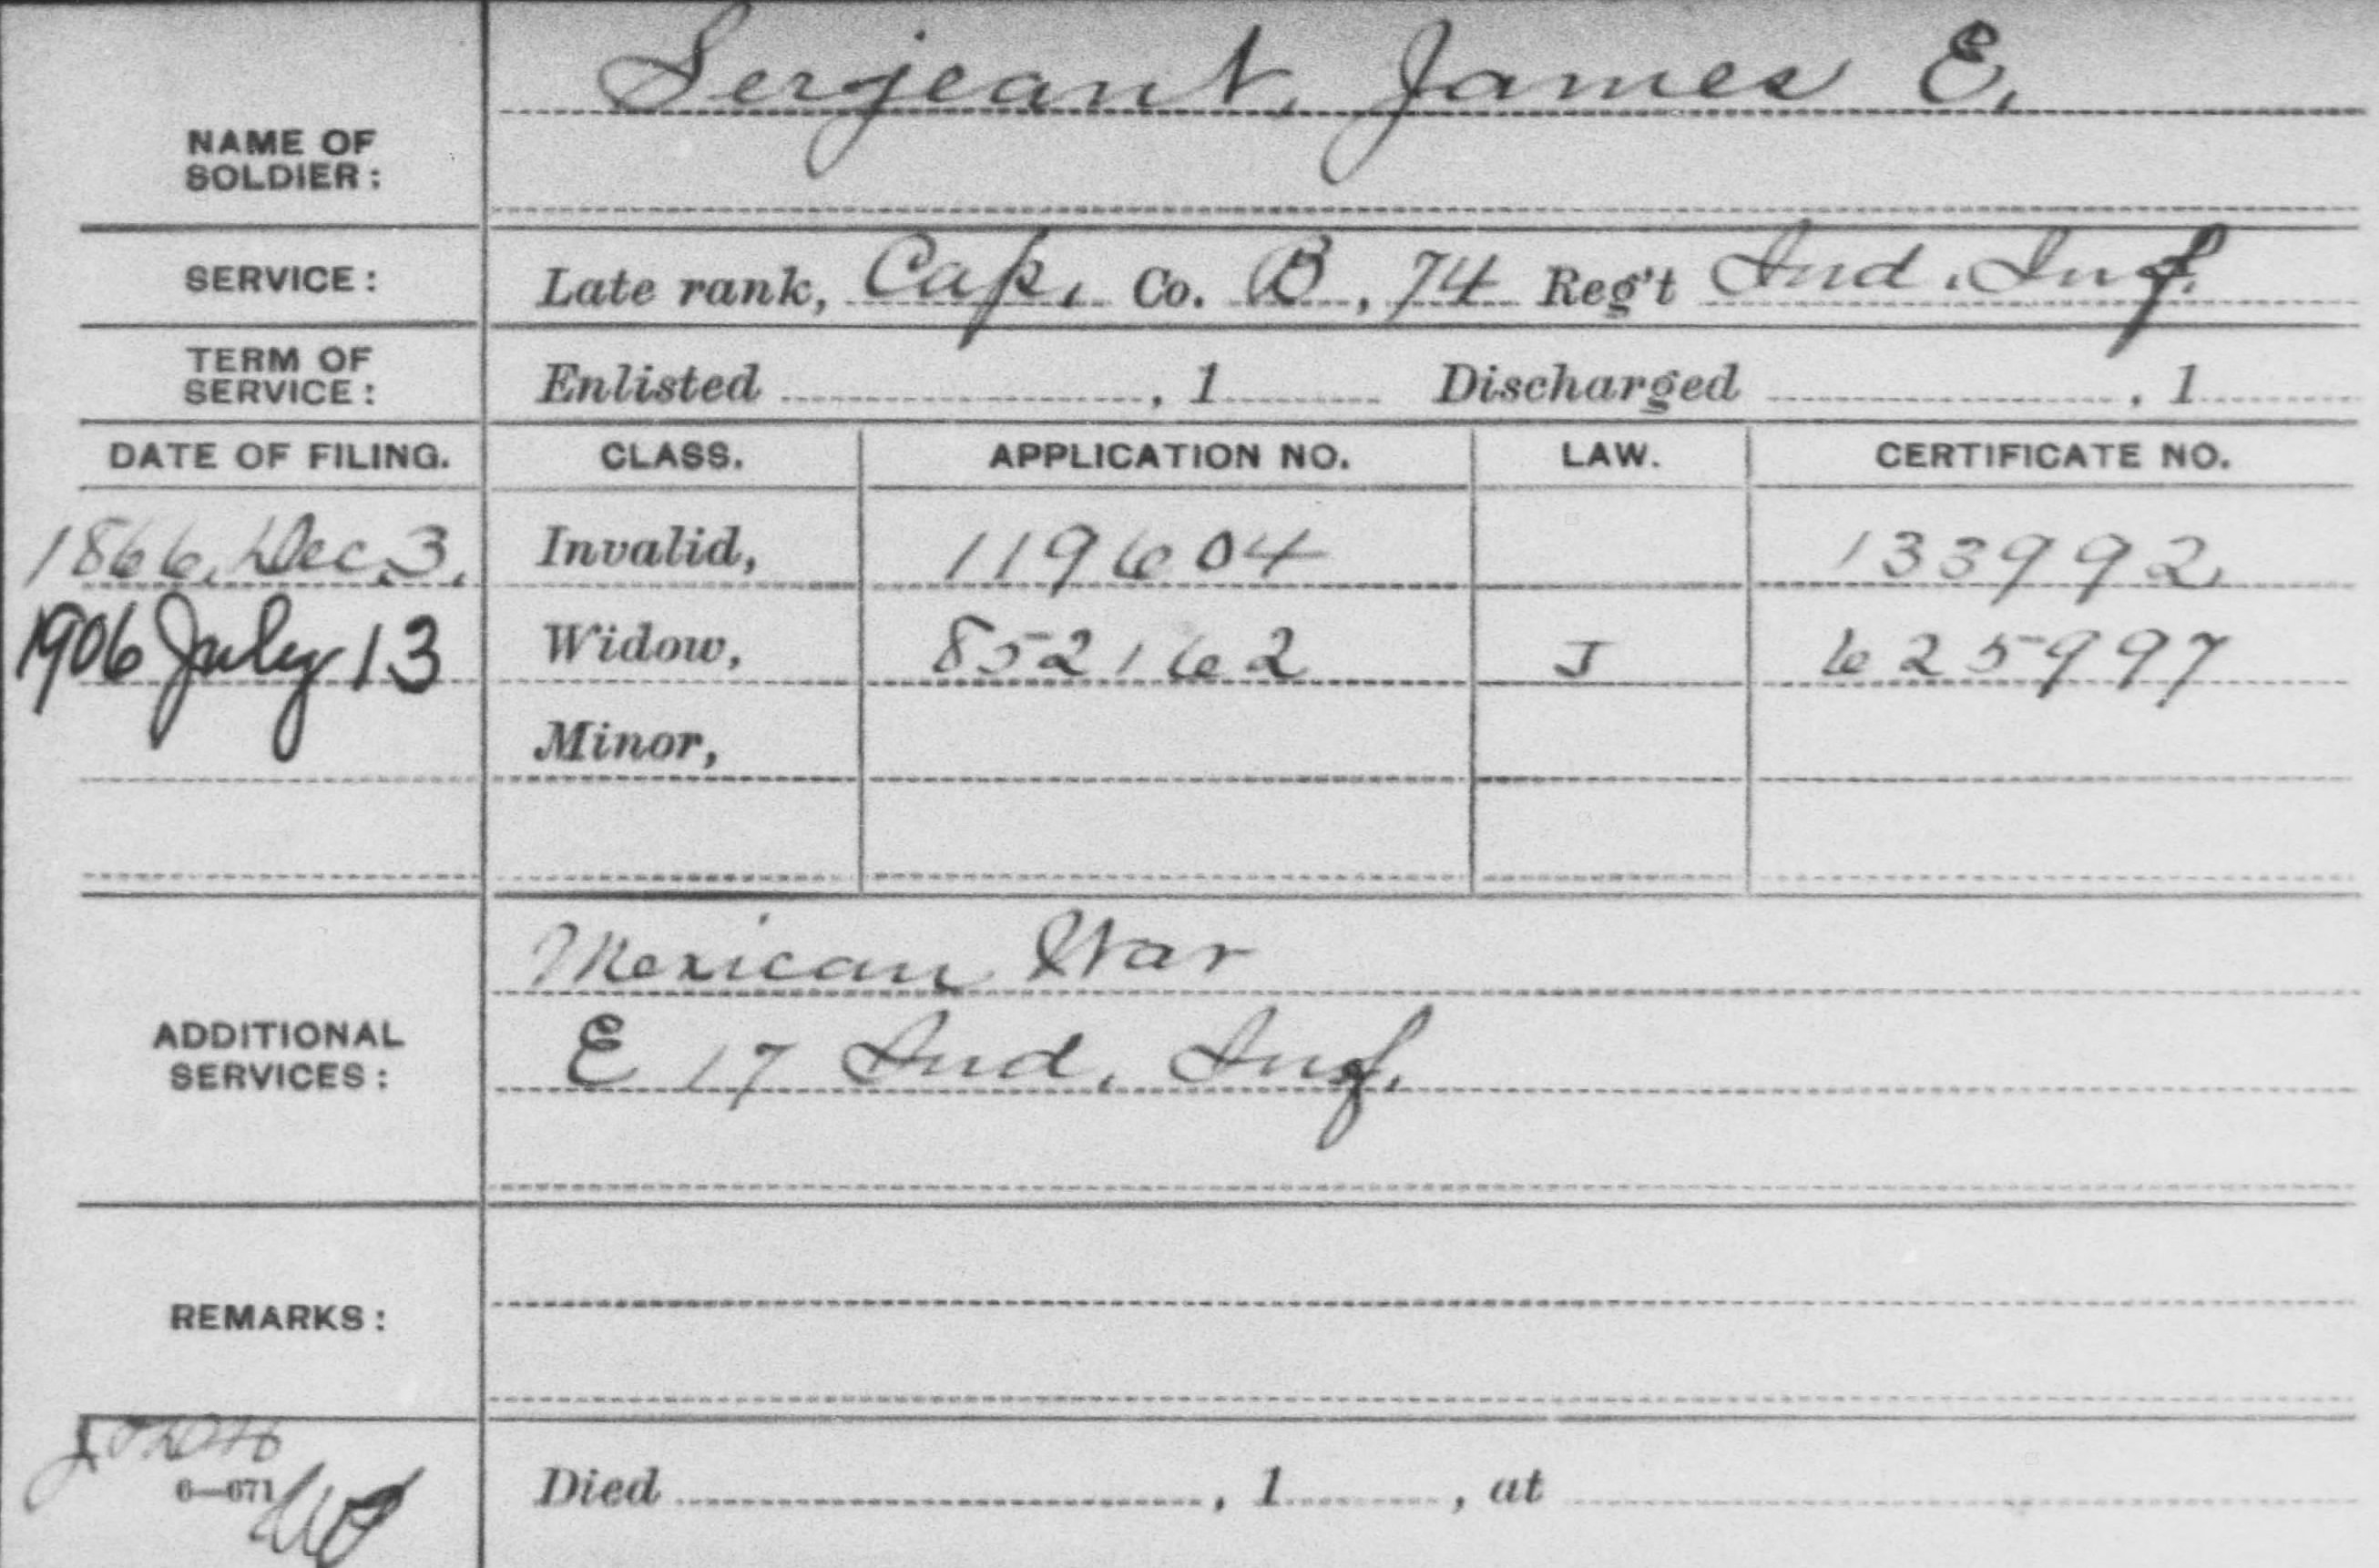 Serjeant, James E.
NAME OF
SOLDIER:
SERVICE: Late rank, Cap. Co. B, 74 Reg't Ind. Inf.
TERM OF
SERVICE: Enlisted , 1 Discharged , 1
DATE OF FILING. CLASS. APPLICATION NO. LAW. CERTIFICATE NO.
1866, Dec. 3. Invalid, 119604 133992
1906 July 13 Widow, 852162 J 625997
Minor,
Mexican War
ADDITIONAL
SERVICES: E 17 Ind. Inf.
REMARKS:
6—671
Died , 1 , at